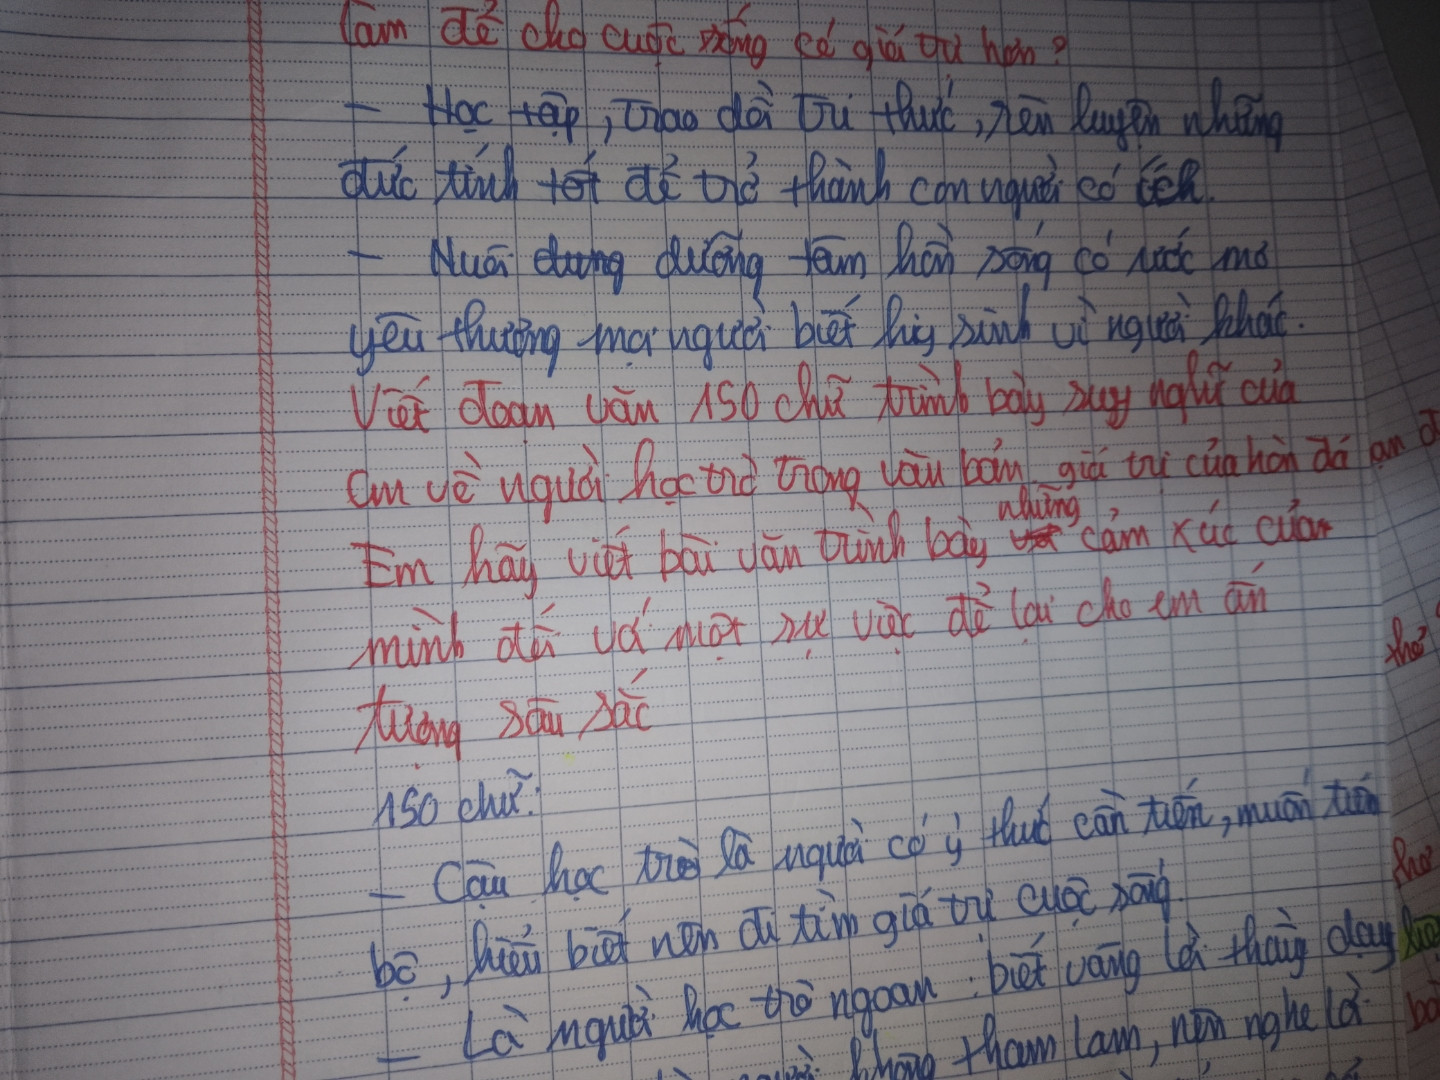 làm để cho cuộc sống có giá trị hơn?
- Học tập, trao dồi tri thức, rèn luyện những
đức tính tốt để trở thành con người có ích.
- Nuôi dưỡng tâm hồn sống có ước mơ
yêu thương mọi người biết hy sinh vì người khác.
Viết đoạn văn 150 chữ trình bày suy nghĩ của
em về người học trò trong văn bản giá trị của hòn đá
Em hãy viết bài văn trình bày những cảm xúc của
mình đối với một sự việc để lại cho em ấn
tượng sâu sắc
150 chữ:
- Cậu học trò là người có ý thức cần tiến, muốn tiến
bộ, hiểu biết nên đi tìm giá trị cuộc sống.
- Là người học trò ngoan: biết vâng lời thầy dạy
không tham lam, nên nghe lời